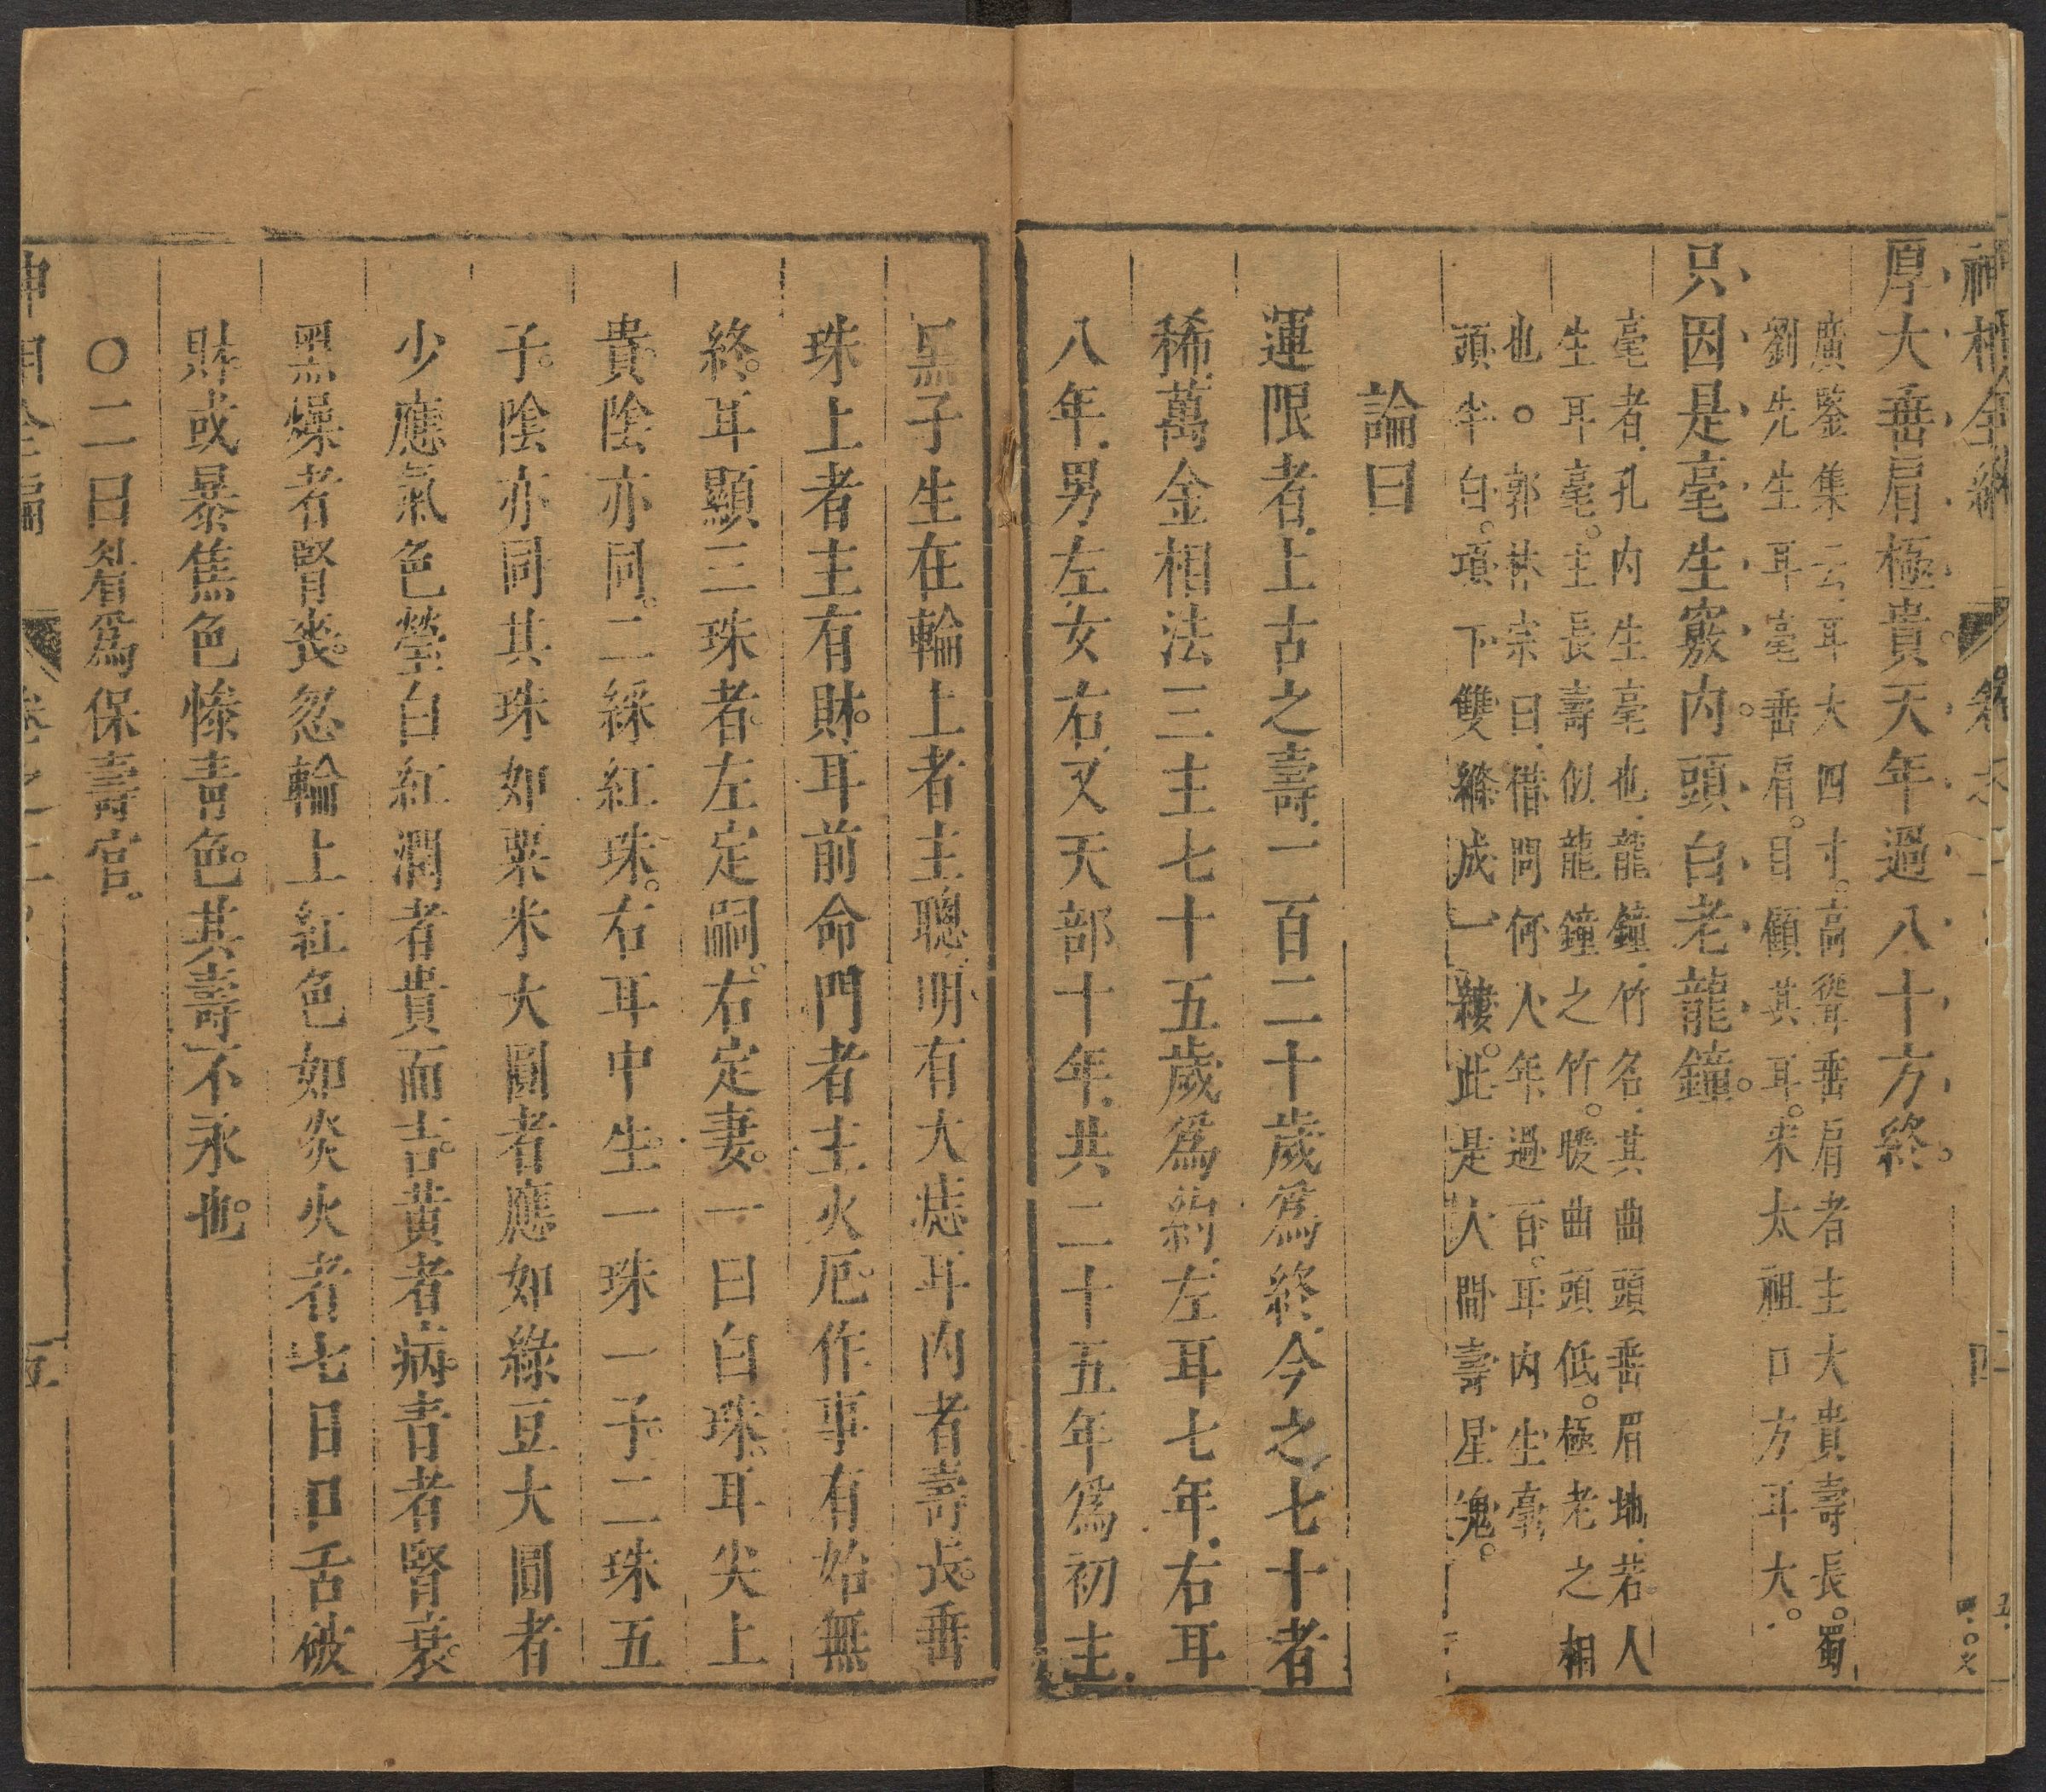 神相全編 卷之二 四
厚大垂肩極貴天年過八十方終。
廣鑒集云耳大四寸。高聳垂肩者主大貴壽長。蜀
劉先生耳毫垂肩。目顧其耳。宋太祖口方耳大。
只因是毫生竅內。頭白老龍鐘。
毫者、孔內生毫也、龍鐘、竹名、其曲頭垂眉地、若人
生耳毫。主長壽似龍鐘之竹。腰曲頭低。極老之相
也。○郭林宗曰、借問何人年過百、耳內生毫
頭半白。項下雙縧成一縷。此是人間壽星魂。
論曰
運限者、上古之壽、一百二十歲爲終、今之七十者
稀、萬金相法三主七十五歲爲約、左耳七年、右耳
八年、男左女右、又天部十年、共二十五年爲初主、
黑子生在輪上者主聰明有大痣耳內者壽長。垂
珠上者主有財。耳前命門者主火厄。作事有始無
終。耳顯三珠者。左定嗣。右定妻。一曰白珠。耳尖上
貴。陰亦同。二綵紅珠。右耳中生一珠一子。二珠五
子。陰亦同其珠如粟米大圓者應如綠豆大圓者
少應氣色瑩白紅潤者貴而吉。黃者病。青者腎衰。
黑燥者腎喪。忽輪上紅色如炎火者七日口舌破
財或暴焦色慘青色。其壽不永也。
○二曰眉爲保壽官。
神相全編 卷之二 五